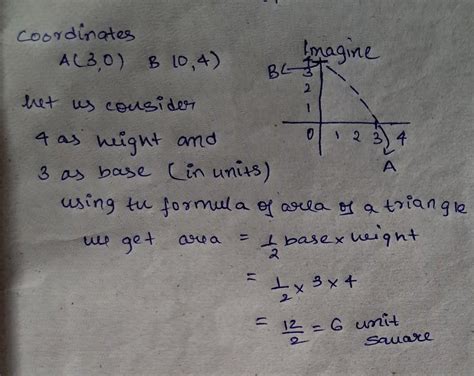 coordinates
A(3,0) B (0,4)
Imagine
B
3
2
1
0 1 2 3 4
A
Let us consider
4 as height and
3 as base (in units)
using the formula of area of a triangle
we get area = 1/2 base x height
= 1/2 x 3 x 4
= 12/2 = 6 unit
square